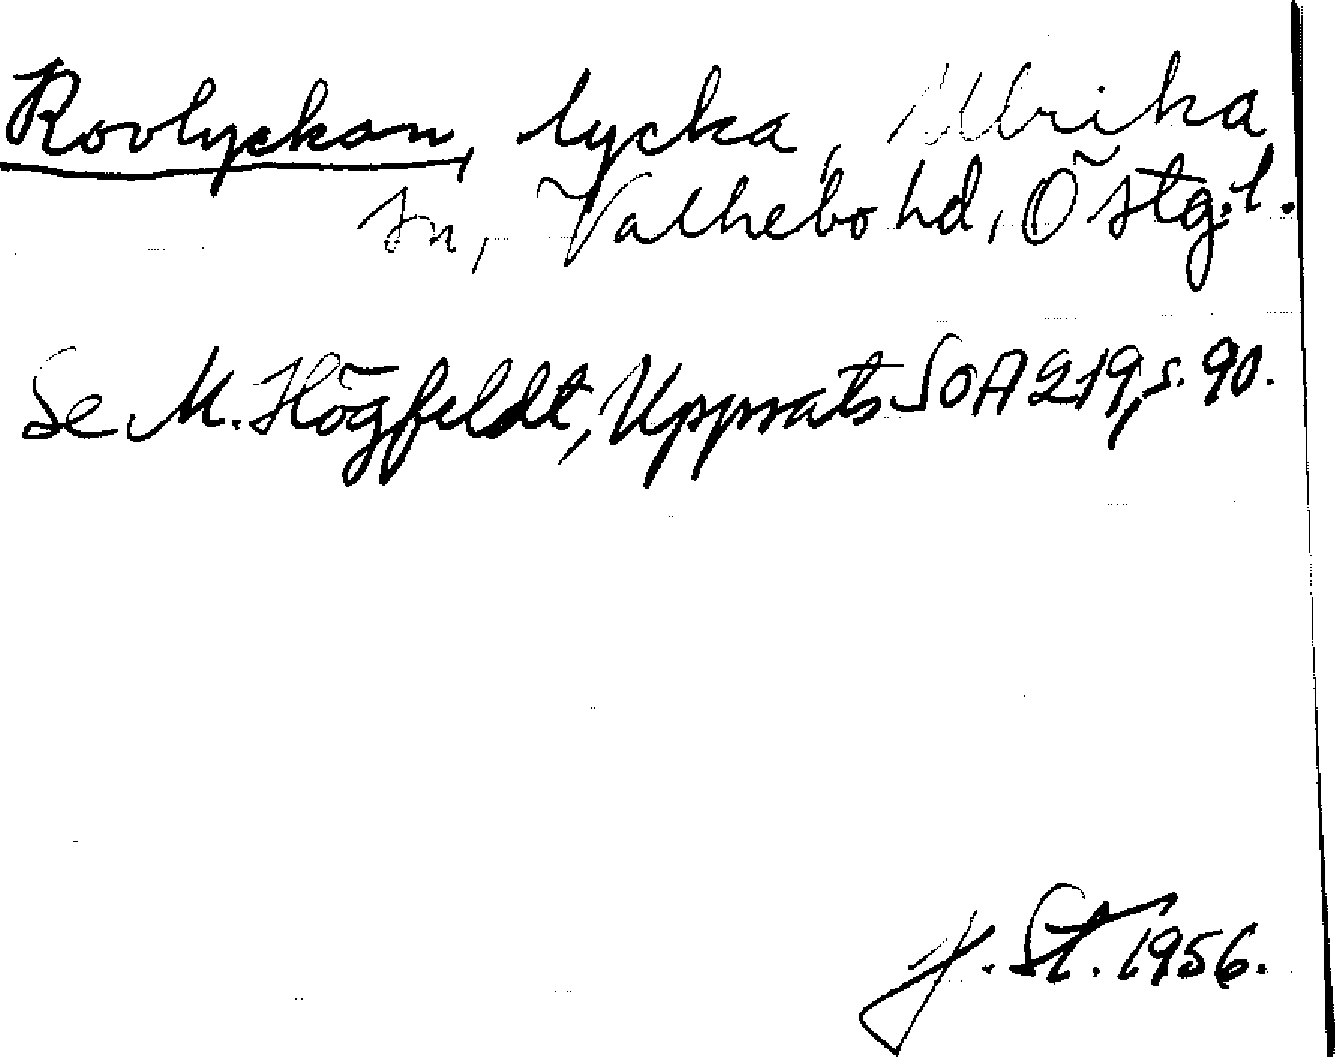 Rovlyckan, lycka, Ulrika
sn, Valkebo hd, Östg.l.
Se M. Högfeldt, Uppsats SOA 219, s. 90.
J. St. 1956.